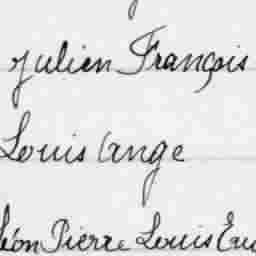 Julien François
Louis Ange
Léon Pierre Louis